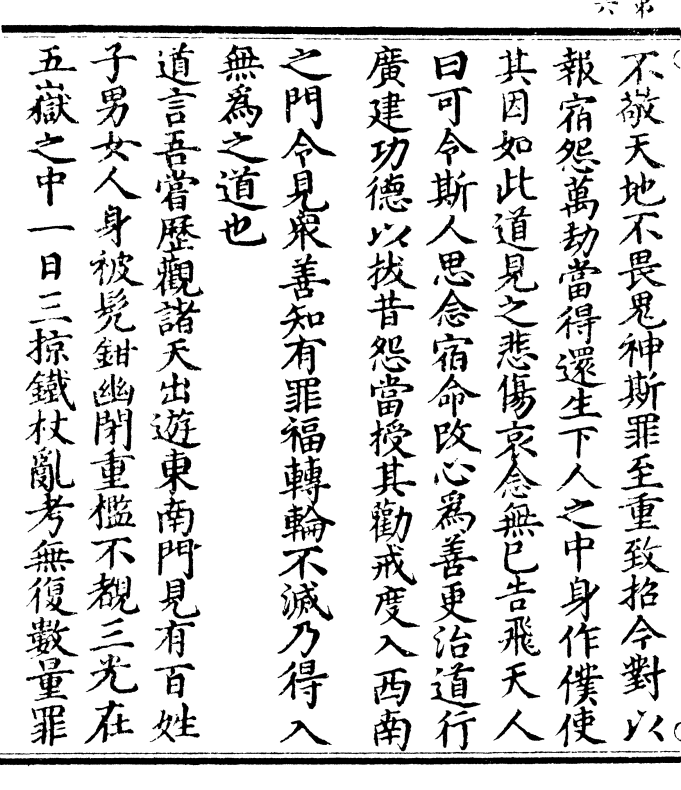 不敬天地不畏鬼神斯罪至重致招今對以
報宿怨萬劫當得還生下人之中身作僕使
其因如此道見之悲傷哀念無已告飛天人
曰可令斯人思念宿命改心爲善更治道行
廣建功德以拔昔怨當授其勸戒度入西南
之門令見衆善知有罪福轉輪不滅乃得入
無爲之道也
道言吾嘗歷觀諸天出遊東南門見有百姓
子男女人身被髡鉗幽閉重檻不覩三光在
五嶽之中一日三掠鐵杖亂考無復數量罪